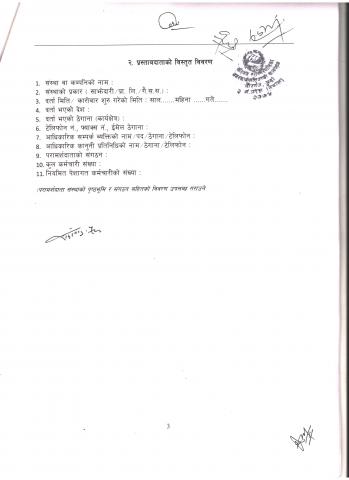 २. प्रस्तावदाताको विस्तृत विवरण
1. संस्था वा कम्पनिको नाम :
2. संस्थाको प्रकार : साझेदारी/प्रा. लि./गै.स.स. :
3. दर्ता मिति/ कारोबार शुरु गरेको मिति : साल......महिना ......गते.....
4. दर्ता भएको देश :
5. दर्ता भएको ठेगाना (कार्यक्षेत्र) :
6. टेलिफोन नं., फ्याक्स नं., ईमेल ठेगाना :
7. आधिकारिक सम्पर्क व्यक्तिको नाम/पद/ठेगाना/टेलिफोन :
8. आधिकारिक कानूनी प्रतिनिधिको नाम/ठेगाना/टेलिफोन :
9. परामर्शदाताको संगठन :
10. कुल कर्मचारी संख्या :
11. नियमित पेशागत कर्मचारीको संख्या :
(परामर्शदाता संस्थाको पृष्ठभूमि र संगठन सहितको विवरण उपलब्ध गराउने
3